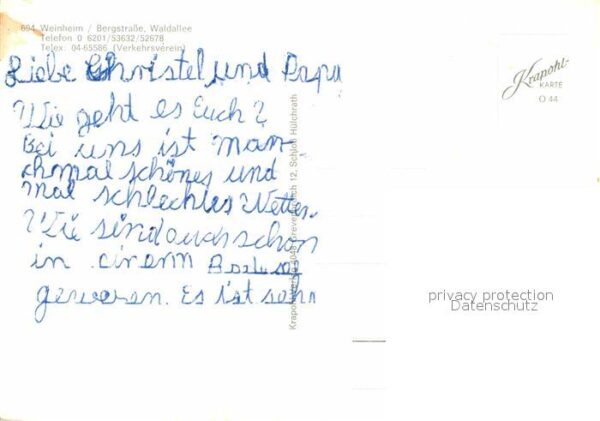 694 Weinheim / Bergstraße, Waldallee
Telefon 0 6201/53632/52678
Telex: 04-65586 (Verkehrsverein)
Liebe Christel und Papa
Wie geht es Euch?
Bei uns ist man-
chmal schönes und
mal schlechtes Wetter.
Wie sind auch schon
in einem
gewesen. Es ist sehr
Krapohl-Verlag, 4048 Grevenbroich 12, Schloß Hülchrath
Krapohl-
KARTE
O 44
privacy protection
Datenschutz